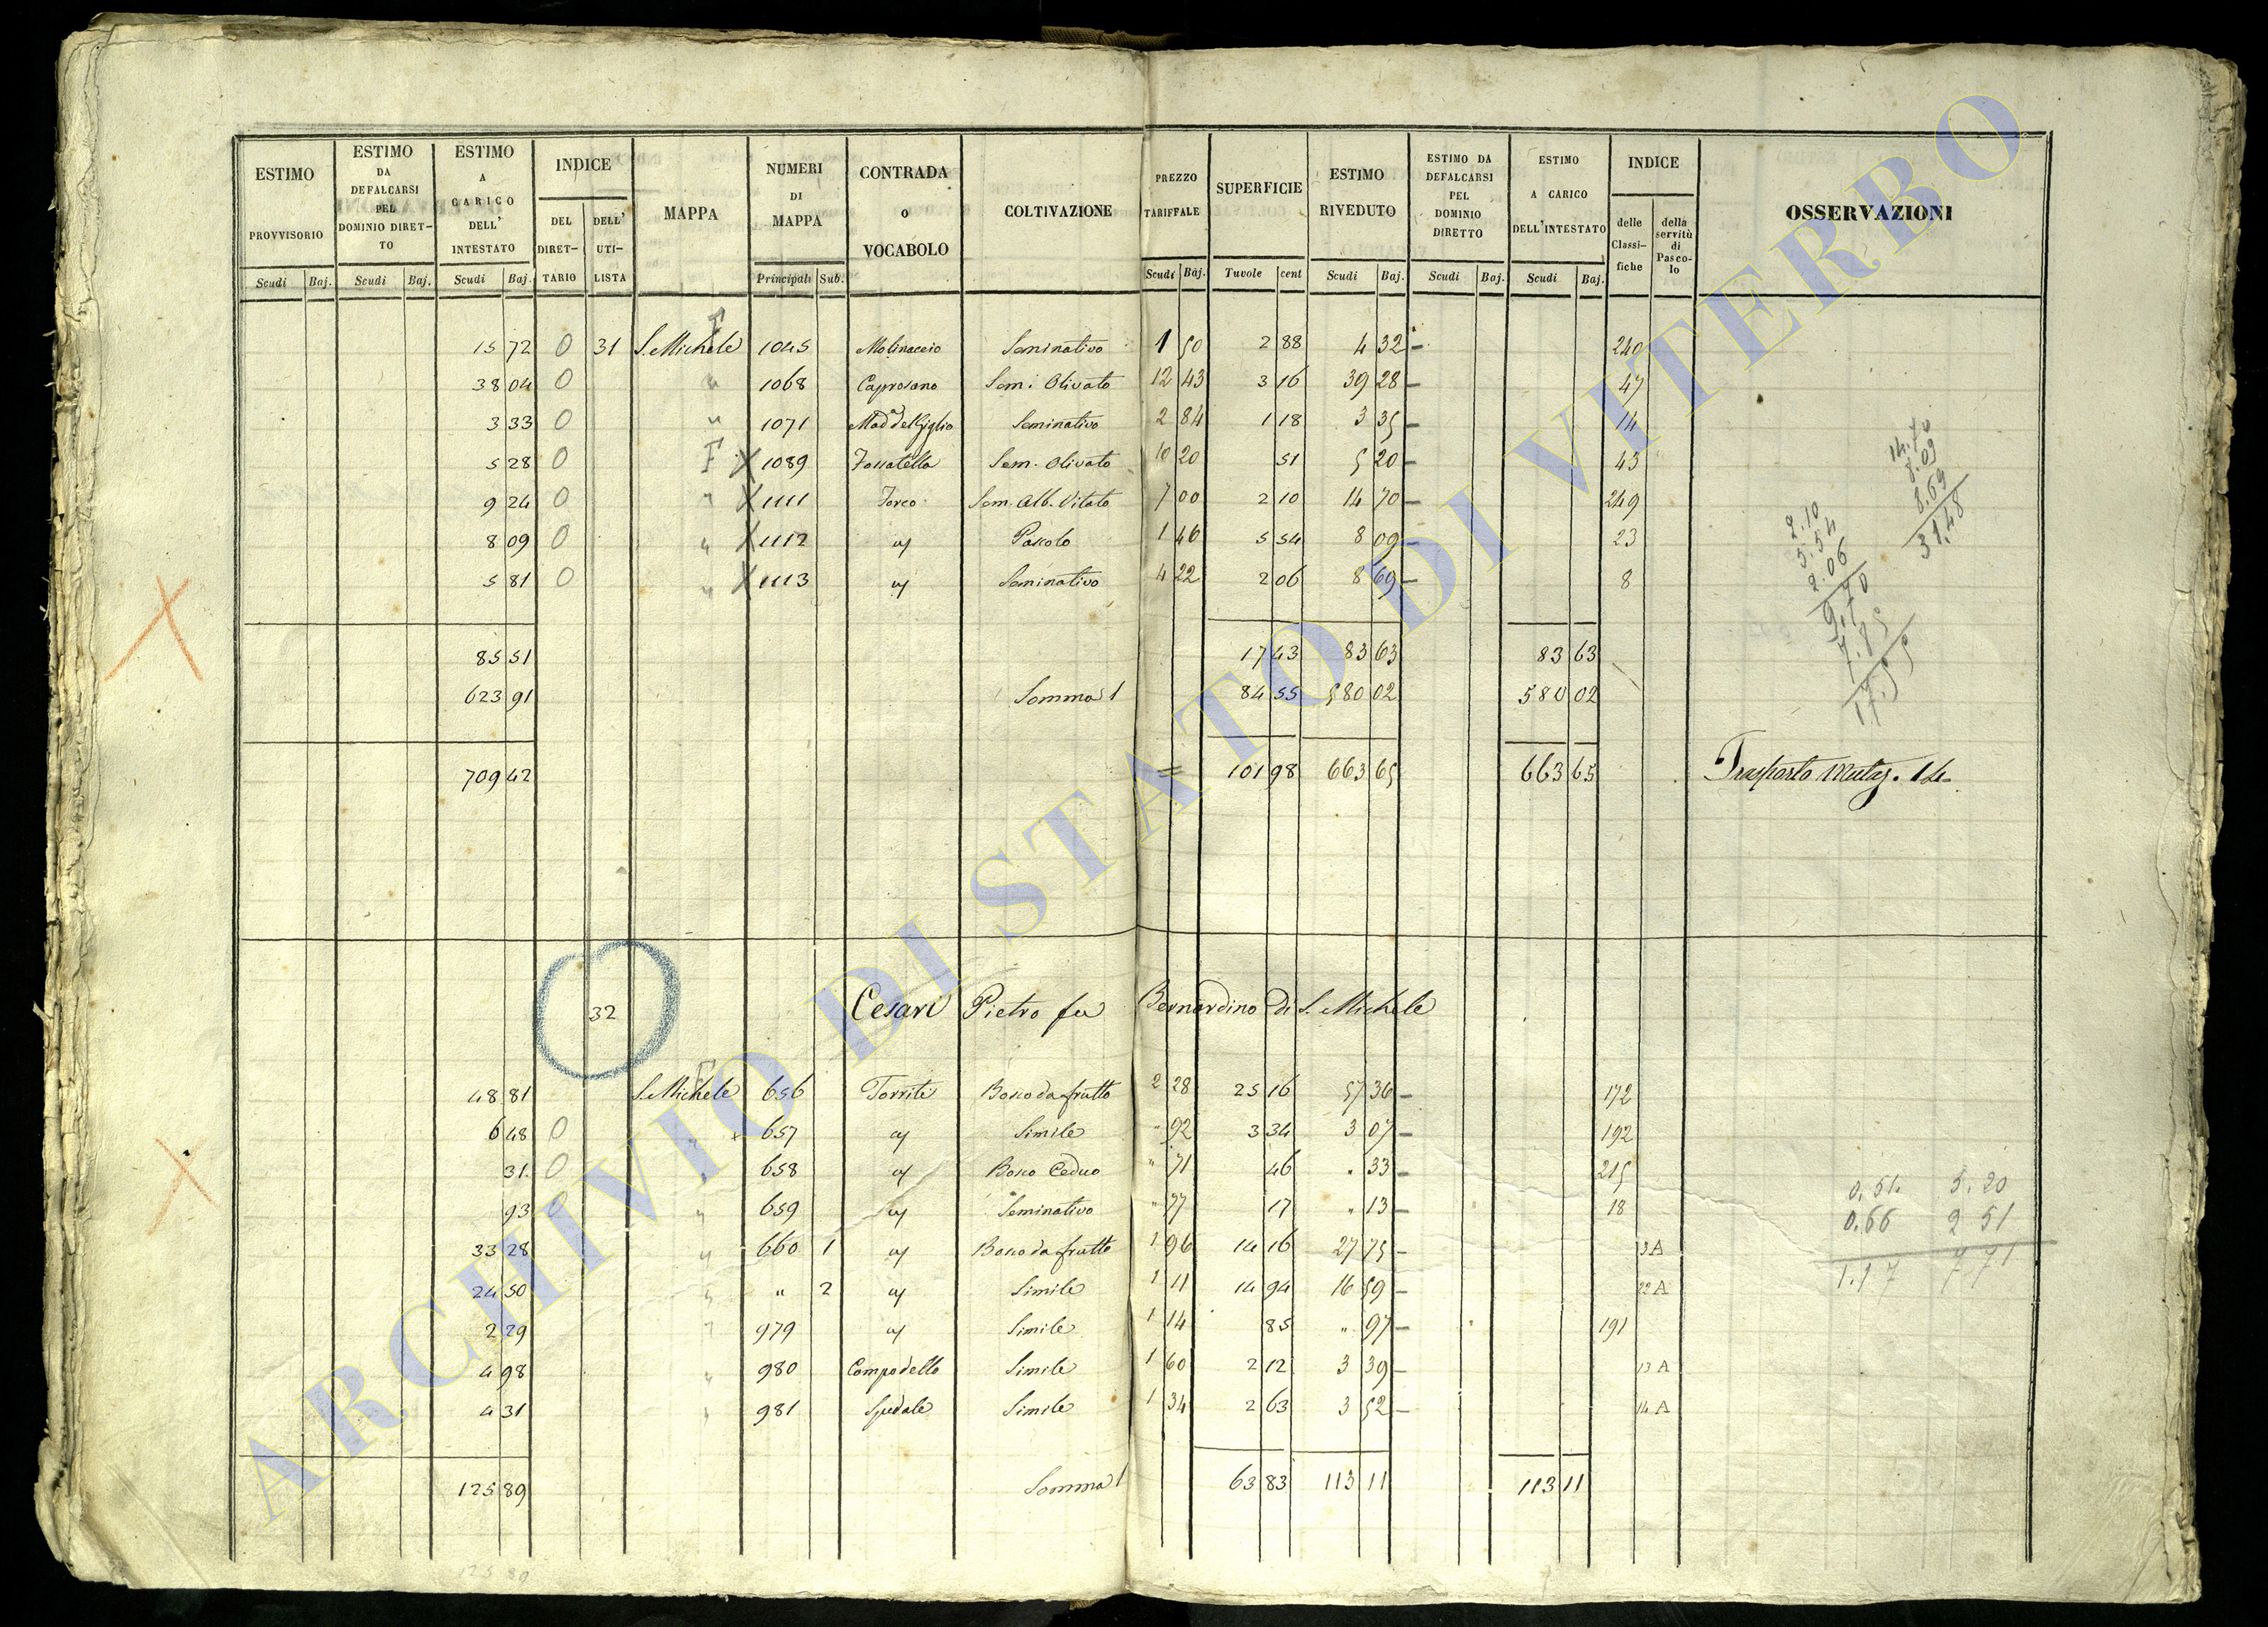 ESTIMO PROVVISORIO Scudi Baj.
ESTIMO DA DEFALCARSI PEL DOMINIO DIRETTO Scudi Baj.
ESTIMO A CARICO DELL' INTESTATO Scudi Baj.
INDICE DEL DIRETTARIO DELL' UTILISTA
MAPPA
NUMERI DI MAPPA Principali Sub.
CONTRADA O VOCABOLO
COLTIVAZIONE
PREZZO TARIFFALE Scudi Baj.
SUPERFICIE Tavole cent
ESTIMO RIVEDUTO Scudi Baj.
ESTIMO DA DEFALCARSI PEL DOMINIO DIRETTO Scudi Baj.
ESTIMO A CARICO DELL'INTESTATO Scudi Baj.
INDICE delle Classifiche della servitù di Pascolo
OSSERVAZIONI
15 72 0 31 S. Michele 1045 Molinaccio Seminativo 1 50 2 88 4 32 240
38 04 0 " 1068 Caprosano Sem: Olivato 12 43 3 16 39 28 47
3 33 0 " 1071 Mad.a del Giglio Seminativo 2 84 1 18 3 35 14
5 28 0 F X 1089 Fossatello Sem. Olivato 10 20 51 5 20 43
9 24 0 " X 1111 Forco Sem. Alb. Vitato 7 00 2 10 14 70 249
8 09 0 " X 1112 Pascolo 1 46 5 54 8 09 23
5 81 0 " X 1113 Seminativo 4 22 2 06 8 69 8
85 51 17 43 83 63 83 63
623 91 Somma 1 84 55 580 02 580 02
709 42 = 101 98 663 65 663 65 Trasporto Mutaz. 14
14.70
8.09
8.69
31.48
2.10
5.54
2.06
9.70
7.85
17.55
32 Cesari Pietro fu Bernardino di S. Michele
48 81 S. Michele 656 Torrite Bosco da frutto 2 28 25 16 57 36 172
6 48 0 " 657 Simile " 92 3 34 3 07 192
31 0 " 658 Bosco Ceduo " 71 46 " 33 215
93 0 " 659 Seminativo " 77 17 " 13 18
33 28 " 660 1 Bosco da frutto 1 96 14 16 27 75 3 A
24 50 " " 2 Simile 1 11 14 94 16 59 22 A
2 29 " 979 Simile 1 14 85 " 97 191
4 98 " 980 Campodello Simile 1 60 2 12 3 39 13 A
4 31 " 981 Spedale Simile 1 34 2 63 3 52 14 A
125 89 Somma 1 63 83 113 11 113 11
0.51 5.20
0.66 2 51
1.17 7 71
125 89
ARCHIVIO DI STATO DI VITERBO